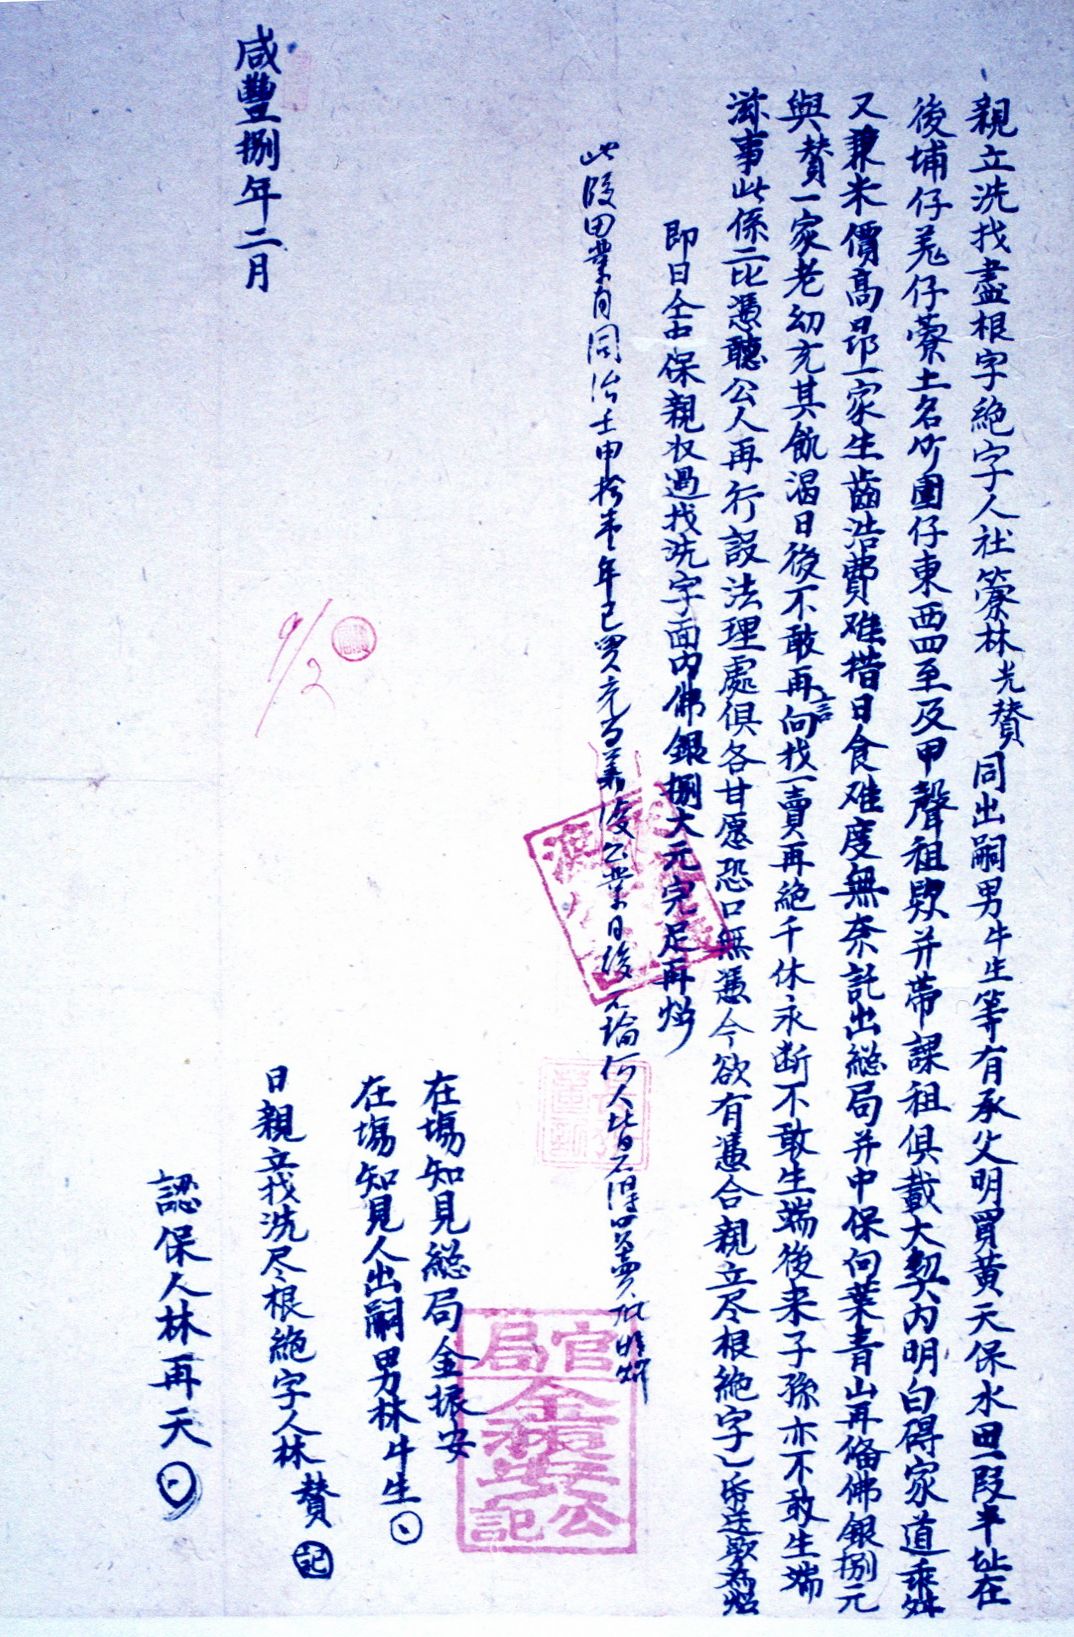 親立洗找盡根字絕字人社藔林光贊同出嗣男牛生等有承父明買黃天保水田一段半址在
後埔仔羗仔藔土名竹圍仔東西四至及甲聲租欵并帶課租俱載大契內明白碍家道乖舛
又兼米價高昂一家生齒浩費难措日食难度無奈託出総局并中保向葉青山再俻佛銀捌元
與贊一家老幼充其飢渴日後不敢再言向找一賣再絕千休永断不敢生端後来子孫亦不敢生端
滋事此係二比憑聽公人再行設法理處俱各甘愿恐口無憑今欲有憑合親立尽根絕字乙帋送歐為炤
即日仝中保親收過找洗字面內佛銀捌大元完足再炤
此段田業自同治壬申拾壹年已買充為義渡公業日後不論何人皆不得典賣批明炤
在塲知見総局金振安
在塲知見人出嗣男林牛生
咸豐捌年二月 日親立找洗尽根絕字人林贊 記
認保人林再天
官局
金振安
公記
9/2